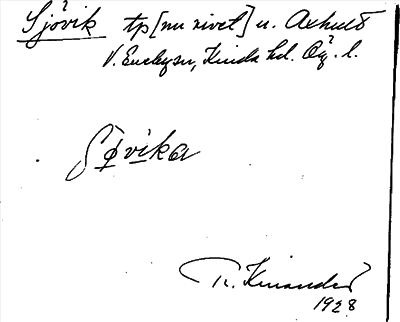 Sjövik tp [nu rivet] u. Axhult
V. Eneby sn, Kinda hd. Ög. l.
Sφvika
R. Kinander
1928